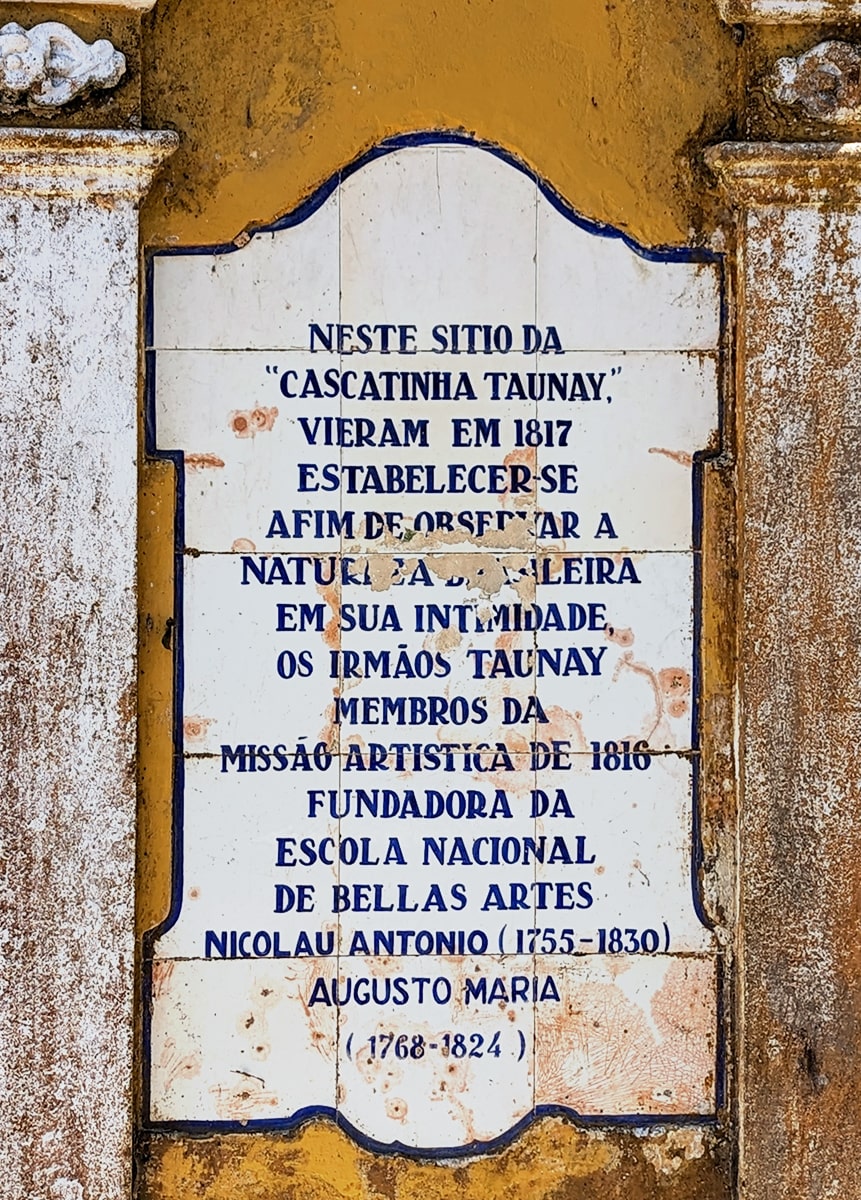 NESTE SITIO DA
"CASCATINHA TAUNAY,"
VIERAM EM 1817
ESTABELECER-SE
AFIM DE OBSERVAR A
NATUREZA BRASILEIRA
EM SUA INTIMIDADE,
OS IRMÃOS TAUNAY
MEMBROS DA
MISSÃO ARTISTICA DE 1816
FUNDADORA DA
ESCOLA NACIONAL
DE BELLAS ARTES
NICOLAU ANTONIO (1755-1830)
AUGUSTO MARIA
(1768-1824)